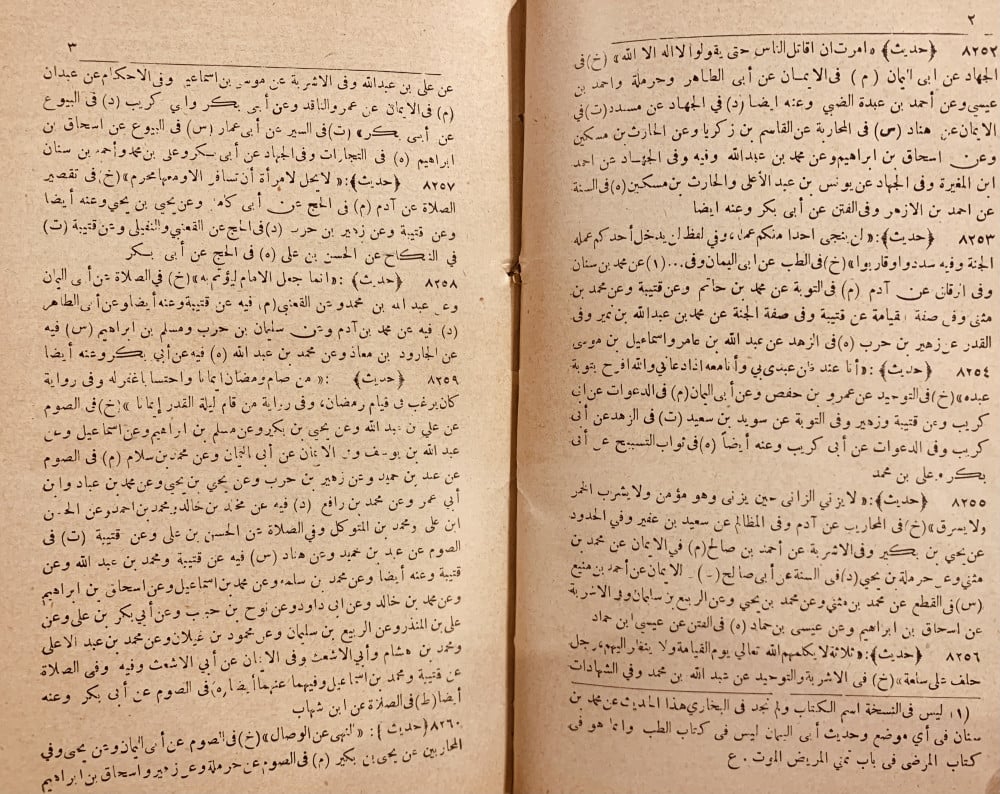 ٢
٨٢٥٢ ﴿حديث﴾ «امرت ان اقاتل الناس حتى يقولوا لا اله الا الله» (خ) فى
الجهاد عن ابى اليمان (م) فى الايمان عن أبى الطاهر وحرملة واحمد بن
عيسى وعن أحمد بن عبدة الضبي وعنه ايضا (د) في الجهاد عن مسدد (ت) في
الايمان عن هناد (س) فى المحاربة عن القاسم بن زكريا وعن الحارث بن مسكين
وعن اسحاق بن ابراهيم وعن محمد بن عبدالله وفيه وفى الجهاد عن احمد
ابن المغيرة وفى الجهاد عن يونس بن عبد الأعلى والحارث بن مسكين (ه) فى السنة
عن احمد بن الازهر وفى الفتن عن أبى بكر وعنه ايضا
٨٢٥٣ ﴿حديث﴾: «لن ينجى احدا منكم عمله، وفي لفظ لن يدخل أحدكم عمله
الجنة وفيه سددوا وقاربوا» (خ) فى الطب عن ابى اليمان وفى...(١) عن محمد بن سنان
وفى الرقاق عن آدم (م) فى التوبة عن محمد بن حاتم وعن قتيبة وعن محمد بن
مثنى وفى صفة القيامة عن قتيبة وفى صفة الجنة عن محمد بن عبدالله بن نمير وفى
القدر عن زهير بن حرب (ه) فى الزهد عن عبد الله بن عامر واسماعيل بن موسى
٨٢٥٤ ﴿حديث﴾: «أنا عند ظن عبدى بي وأنا معه اذا دعانى والله افرح بتوبة
عبده» (خ) فى التوحيد عن عمرو بن حفص وعن أبى اليمان (م) فى الدعوات عن ابى
كريب وعن قتيبة وزهير وفى التوبة عن سويد بن سعيد (ت) فى الزهد عن أبى
كريب وفى الدعوات عن أبى كريب وعنه أيضاً (ه) فى ثواب التسبيح عن أبى
بكر وعلى بن محمد
٨٢٥٥ ﴿حديث﴾: «لا يزني الزانى حين يزنى وهو مؤمن ولا يشرب الخمر
ولا يسرق» (خ) فى المحاربب عن آدم وفى المظالم عن سعيد بن عفير وفي الحدود
عن يحيى بن بكير وفى الاشربة عن أحمد بن صالح (م) فى الايمان عن محمد بن
مثنى وعن حرملة بن يحيى (د) فى السنة عن أبى صالح (ت) الايمان عن أحمد بن منيع
(س) فى القطع عن محمد بن مثنى وعن محمد بن يحيى وعن الربيع بن سليمان وفى الاشربة
عن اسحاق بن ابراهيم وعن عيسى بن حماد (ه) فى الفتن عن عيسى ابن حماد
٨٢٥٦ ﴿حديث﴾: «ثلاثة لا يكلمهم الله تعالي يوم القيامة ولا ينظر اليهم، رجل
حلف على سلعة» (خ) فى الاشربة والتوحيد عن عبد الله بن محمد وفي الشهادات
(١) ليس فى النسخة اسم الكتاب ولم نجد فى البخاري هذا الحديث عن محمد بن
سنان فى أي موضع وحديث أبى اليمان ليس فى كتاب الطب وانما هو فى
كتاب المرضى فى باب تمني المريض الموت . ع
٣
عن على بن عبدالله وفى الاشربة عن موسى بن اسماعيل وفى الاحكام عن عبدان
(م) فى الايمان عن عمرو الناقد وعن أبى بكر وابى كريب (د) فى البيوع
عن أبى بكر» (ت) فى السير عن أبى عمار (س) فى البيوع عن اسحاق ابن
ابراهيم (ه) فى التجارات وفى الجهاد عن أبى بكر وعلى بن محمد وأحمد بن سنان
٨٢٥٧ ﴿حديث﴾: «لا يحل لامرأة أن تسافر الا ومعها محرم» (خ) فى تقصير
الصلاة عن آدم (م) فى الحج عن أبى كامل وعن يحيى بن يحيى وعنه أيضا
وعن قتيبة وعن زهير بن حرب (د) فى الحج عن القعنبي والنفيلى وعن قتيبة (ت)
في النكاح عن الحسن بن على (ه) فى الحج عن أبى بكر
٨٢٥٨ ﴿حديث﴾: «انما جعل الامام ليؤتم به» (خ) فى الصلاة عن أبى اليمان
وعن عبد الله بن محمد وعن القعنبي (م) فيه عن قتيبة وعنه أيضا وعن أبى الطاهر
(د) فيه عن محمد بن آدم وعن سليمان بن حرب ومسلم بن ابراهيم (س) فيه
عن الجارود بن معاذ وعن محمد بن عبد الله (ه) فيه عن أبي بكر وعنه أيضا
٨٢٥٩ ﴿حديث﴾: «من صام رمضان ايمانا واحتسابا غفر له وفى رواية
كان يرغب فى قيام رمضان، وفى رواية من قام ليلة القدر إيمانا» (خ) فى الصوم
عن علي بن عبد الله وعن يحيى بن بكير وعن مسلم بن ابراهيم وعن اسماعيل وعن
عبد الله بن يوسف وفى الايمان عن أبى اليمان وعن محمد بن سلام (م) فى الصوم
عن عبد بن حميد وعن زهير بن حرب وعن يحيى بن يحيى وعن محمد بن عباد وابن
أبي عمر وعن محمد بن رافع (د) فيه عن مخلد بن خالد ومحمد بن احمد وعن الحسن
ابن على ومحمد بن المتوكل وفى الصلاة عن الحسن بن على وعن قتيبة (ت) فى
الصوم عن عبد بن حميد وعن هناد (س) فيه عن قتيبة ومحمد بن عبد الله وعن
قتيبة وعنه أيضا وعن محمد بن سلمه وعن محمد بن اسماعيل وعن اسحاق بن ابراهيم
وعن محمد بن خالد وعن ابى داود وعن نوح بن حبيب وعن أبي بكر بن على وعن
على بن المنذر وعن الربيع بن سليمان وعن محمود بن غيلان وعن محمد بن عبد الاعلى
ومحمد بن هشام وأبي الاشعث وفى الايمان عن أبي الاشعث وفيه وفى الصلاة
عن قتيبة ومحمد بن اسماعيل وفيهما عنهما أيضا (ه) فى الصوم عن أبى بكر وعنه
أيضا (ط) فى الصلاة عن ابن شهاب
٨٢٦٠ ﴿حديث﴾: «النهى عن الوصال» (خ) فى الصوم عن أبى اليمان وعن يحيى وفى
المحاربين عن يحيى بن بكير (م) فى الصوم عن حرملة وعن زهير واسحاق بن ابراهيم